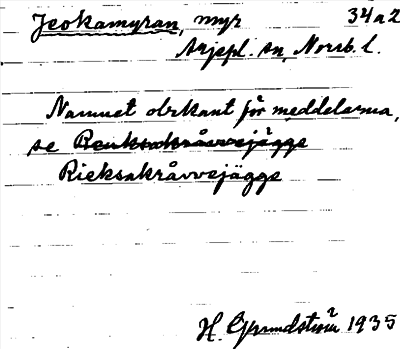 Jeokamyran, myr 34a2
Arjepl. sn, Norrb. l.
Namnet obekant för meddelarna,
se Rieksakråvvejägge
Rieksakråvvejägge
H. Grundström 1935